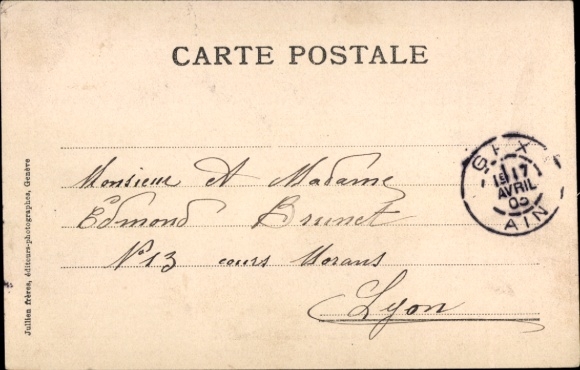 CARTE POSTALE
Monsieur et Madame
Edmond Brunet
No 13 cours Morans
Lyon
GEX
17
AVRIL
AIN
Jullien frères, éditeurs-photographes, Genève